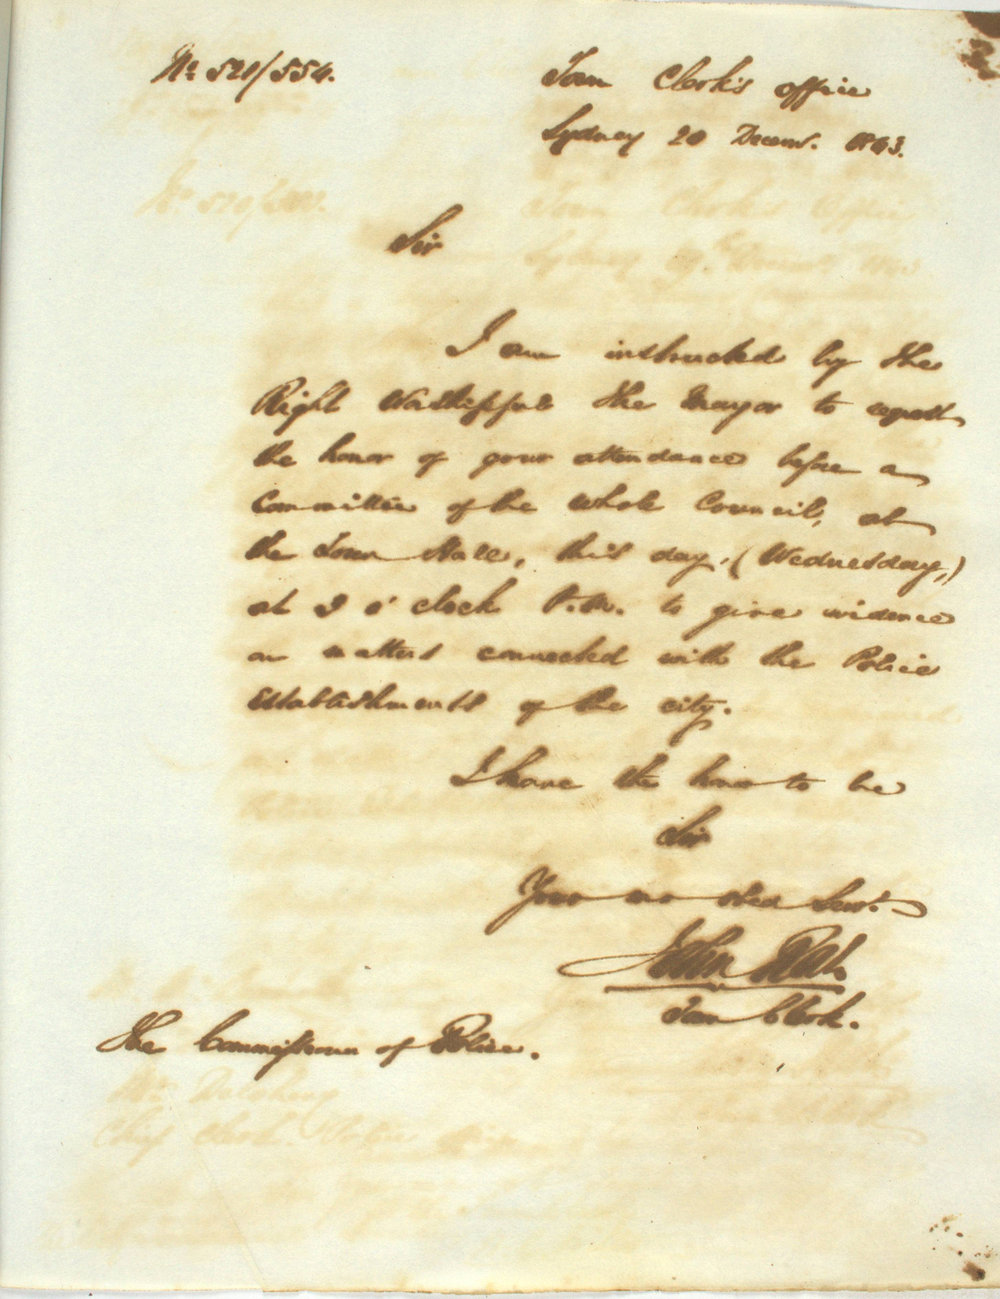 No. 521/554.
Town Clerk's Office
Sydney 20 Decem. 1843.
Sir
I am instructed by the
Right Worshipful the Mayor to request
the honor of your attendance before a
Committee of the whole Council, at
the Town Hall, this day, (Wednesday,)
at 3 o'clock P.M. to give evidence
on matters connected with the Police
Establishments of the city.
I have the honor to be
Sir
Your mo obed Servt.
John Rae
Town Clerk.
The Commissioner of Police.